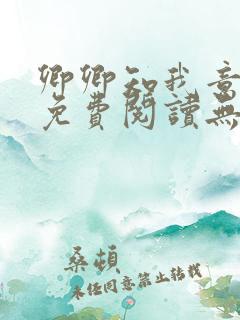 卿卿知我意
免費閱讀無
桑頓
未经同意禁止转载